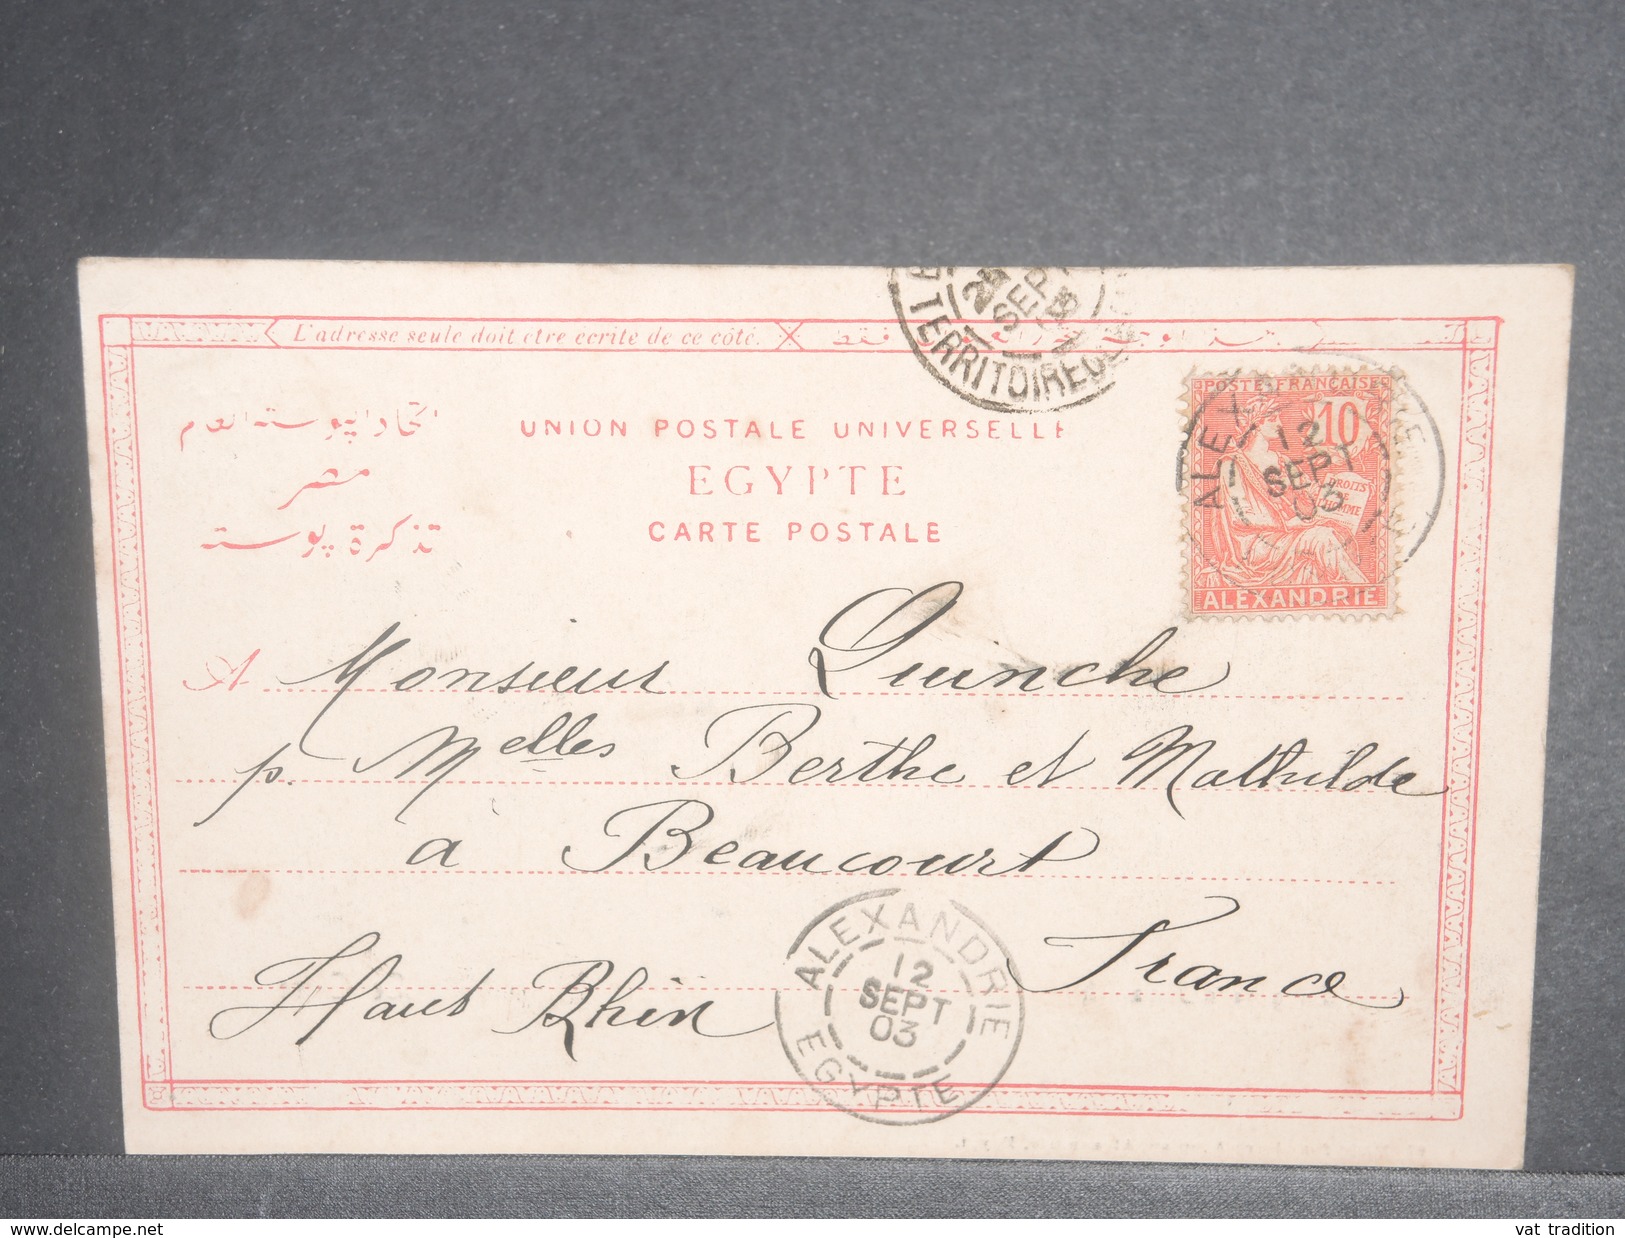 L'adresse seule doit être écrite de ce côté.
فقط
TERRITOIRE
SEPT
03
POSTE FRANÇAISE
10
DROITS
DE
L'HOMME
ALEXANDRIE
12
SEPT
03
اتحاد البوسته العام
مصر
تذكرة بوسته
UNION POSTALE UNIVERSELLE
EGYPTE
CARTE POSTALE
A Monsieur Quinche
p. Melles Berthe et Mathilde
à Beaucourt
Haut Rhin France
ALEXANDRIE
12
SEPT
03
EGYPTE
www.delcampe.net
vat tradition